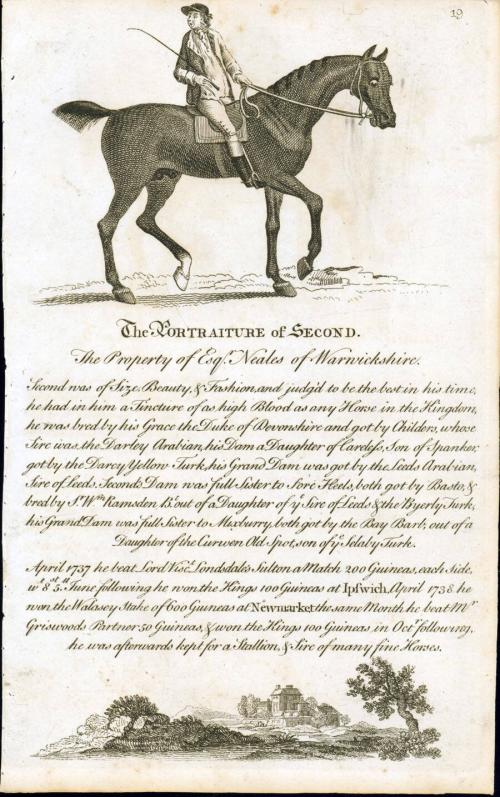 19
The PORTRAITURE of SECOND.
The Property of Esqr. Neales of Warwickshire.
Second was of Size, Beauty, & Fashion, and judg'd to be the best in his time,
he had in him a Tincture of as high Blood as any Horse in the Kingdom,
he was bred by his Grace the Duke of Devonshire and got by Childers, whose
Sire was the Darley Arabian, his Dam a Daughter of Careless, Son of Spanker,
got by the Darcy Yellow Turk, his Grand Dam was got by the Leeds Arabian,
Sire of Leeds. Seconds Dam was full Sister to Sore Heels, both got by Basto, &
bred by Sr. Wm. Ramsden Bt. out of a Daughter of ye Sire of Leeds & the Byerly Turk,
his Grand Dam was full Sister to Moxburry, both got by the Bay Barb, out of a
Daughter of the Curwen Old Spot, son of ye Selaby Turk.
April 1737 he beat Lord Visct. Londsdales Sulton a Match 200 Guineas, each Side,
wt. 8st. 5ll. June following he won the Kings 100 Guineas at Ipswich, April 1738 he
won the Walasey Stake of 600 Guineas at Newmarket, the same Month he beat Mr
Griswoods Partner 50 Guineas, & won the Kings 100 Guineas in Octr. following,
he was afterwards kept for a Stallion, & Sire of many fine Horses.